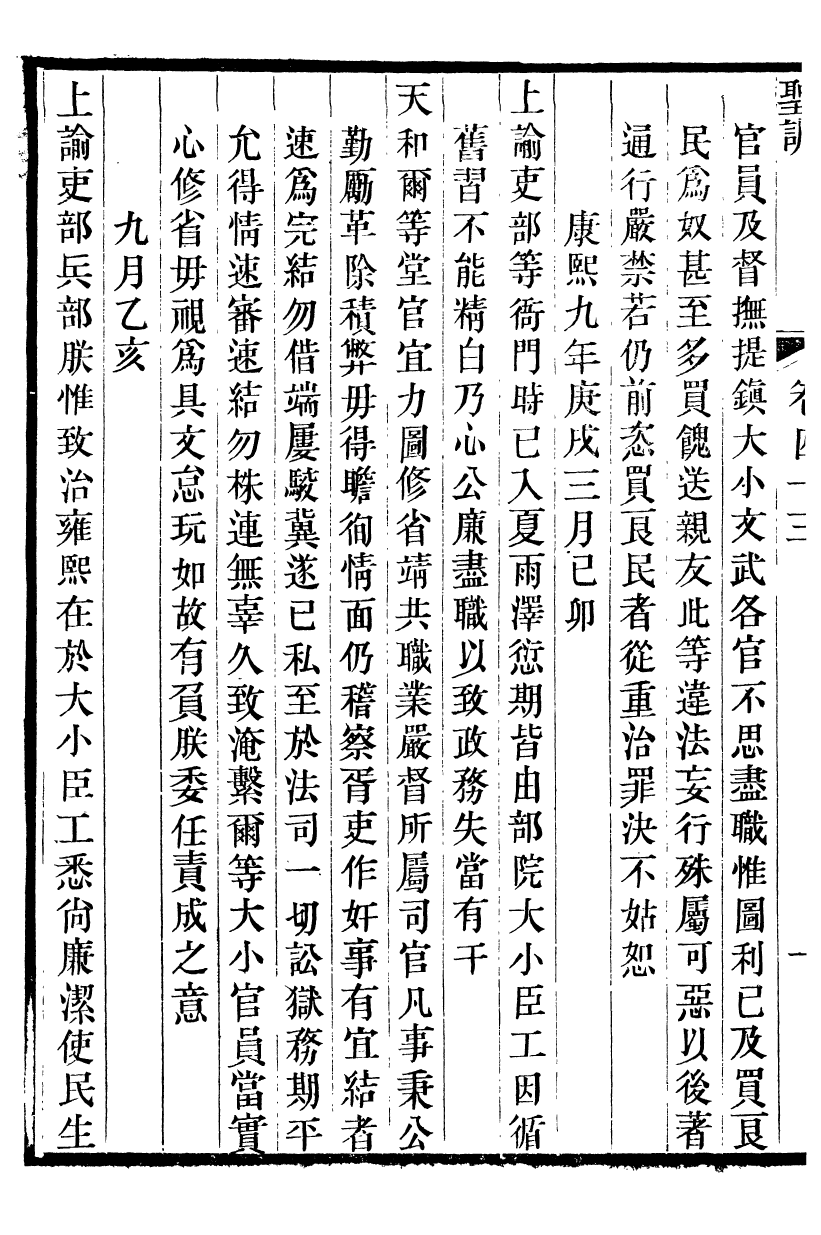 聖訓 卷四十三 一
官員及督撫提鎮大小文武各官不思盡職惟圖利已及買良
民爲奴甚至多買餽送親友此等違法妄行殊屬可惡以後著
通行嚴禁若仍前恣買良民者從重治罪決不姑恕
康熙九年庚戌三月己卯
上諭吏部等衙門時已入夏雨澤愆期皆由部院大小臣工因循
舊習不能精白乃心公廉盡職以致政務失當有干
天和爾等堂官宜力圖修省靖共職業嚴督所屬司官凡事秉公
勤勵革除積弊毋得瞻徇情面仍稽察胥吏作奸事有宜結者
速爲完結勿借端屢駮冀遂已私至於法司一切訟獄務期平
允得情速審速結勿株連無辜久致淹繫爾等大小官員當實
心修省毋視爲具文怠玩如故有負朕委任責成之意
九月乙亥
上諭吏部兵部朕惟致治雍熙在於大小臣工悉尙廉潔使民生